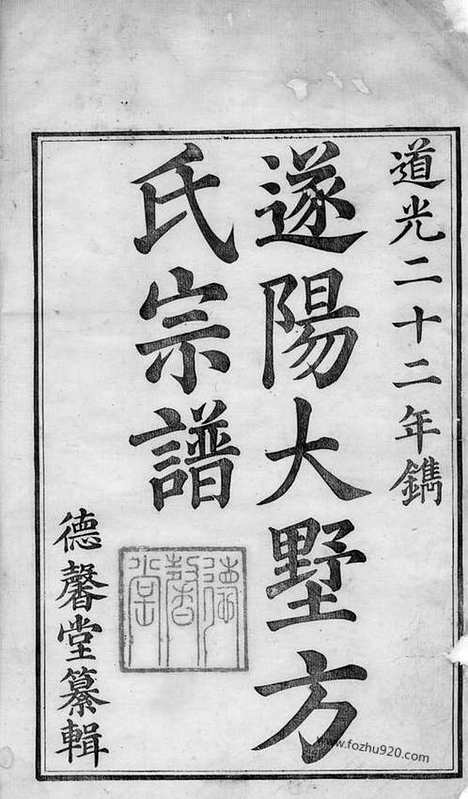 道光二十二年鐫
遂陽大墅方
氏宗譜
德馨堂纂輯
德馨堂
www.fozhu920.com